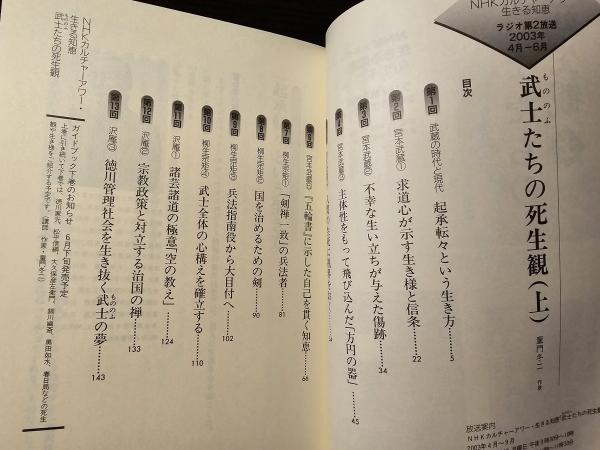 NHKカルチャーアワー
生きる知恵
ラジオ第2放送
2003年
4月―6月
武士たちの死生観(上)
もののふ
童門冬二 作家
目次
第1回 武蔵の時代と現代 起承転々という生き方……5
第2回 宮本武蔵① 求道心が示す生き様と信条……22
第3回 宮本武蔵② 不幸な生い立ちが与えた傷跡……34
第4回 主体性をもって飛び込んだ「方円の器」……45
『五輪書』に示した自己を貫く知恵……66
第7回 柳生宗矩① 「剣禅一致」の兵法者……81
第8回 柳生宗矩② 国を治めるための剣……90
第9回 柳生宗矩③ 兵法指南役から大目付へ……102
第10回 柳生宗矩④ 武士全体の心構えを確立する……110
第11回 沢庵① 諸芸諸道の極意「空の教え」……124
第12回 沢庵② 宗教政策と対立する治国の禅……133
第13回 沢庵③ 徳川管理社会を生き抜く武士の夢……143
もののふ
ガイドブック下巻のお知らせ 6月下旬発売予定
上巻に引き続いて下巻では、徳川家光、松平信綱、大久保彦左衛門、細川幽斎、黒田如水、春日局などの死生
観や生き様をご紹介する予定です。(講師 作家・童門冬二)
NHKカルチャーアワー・
生きる知恵
武士たちの死生観
もののふ
放送案内
NHKカルチャーアワー・生きる知恵「武士たちの死生観
2003年4月〜9月